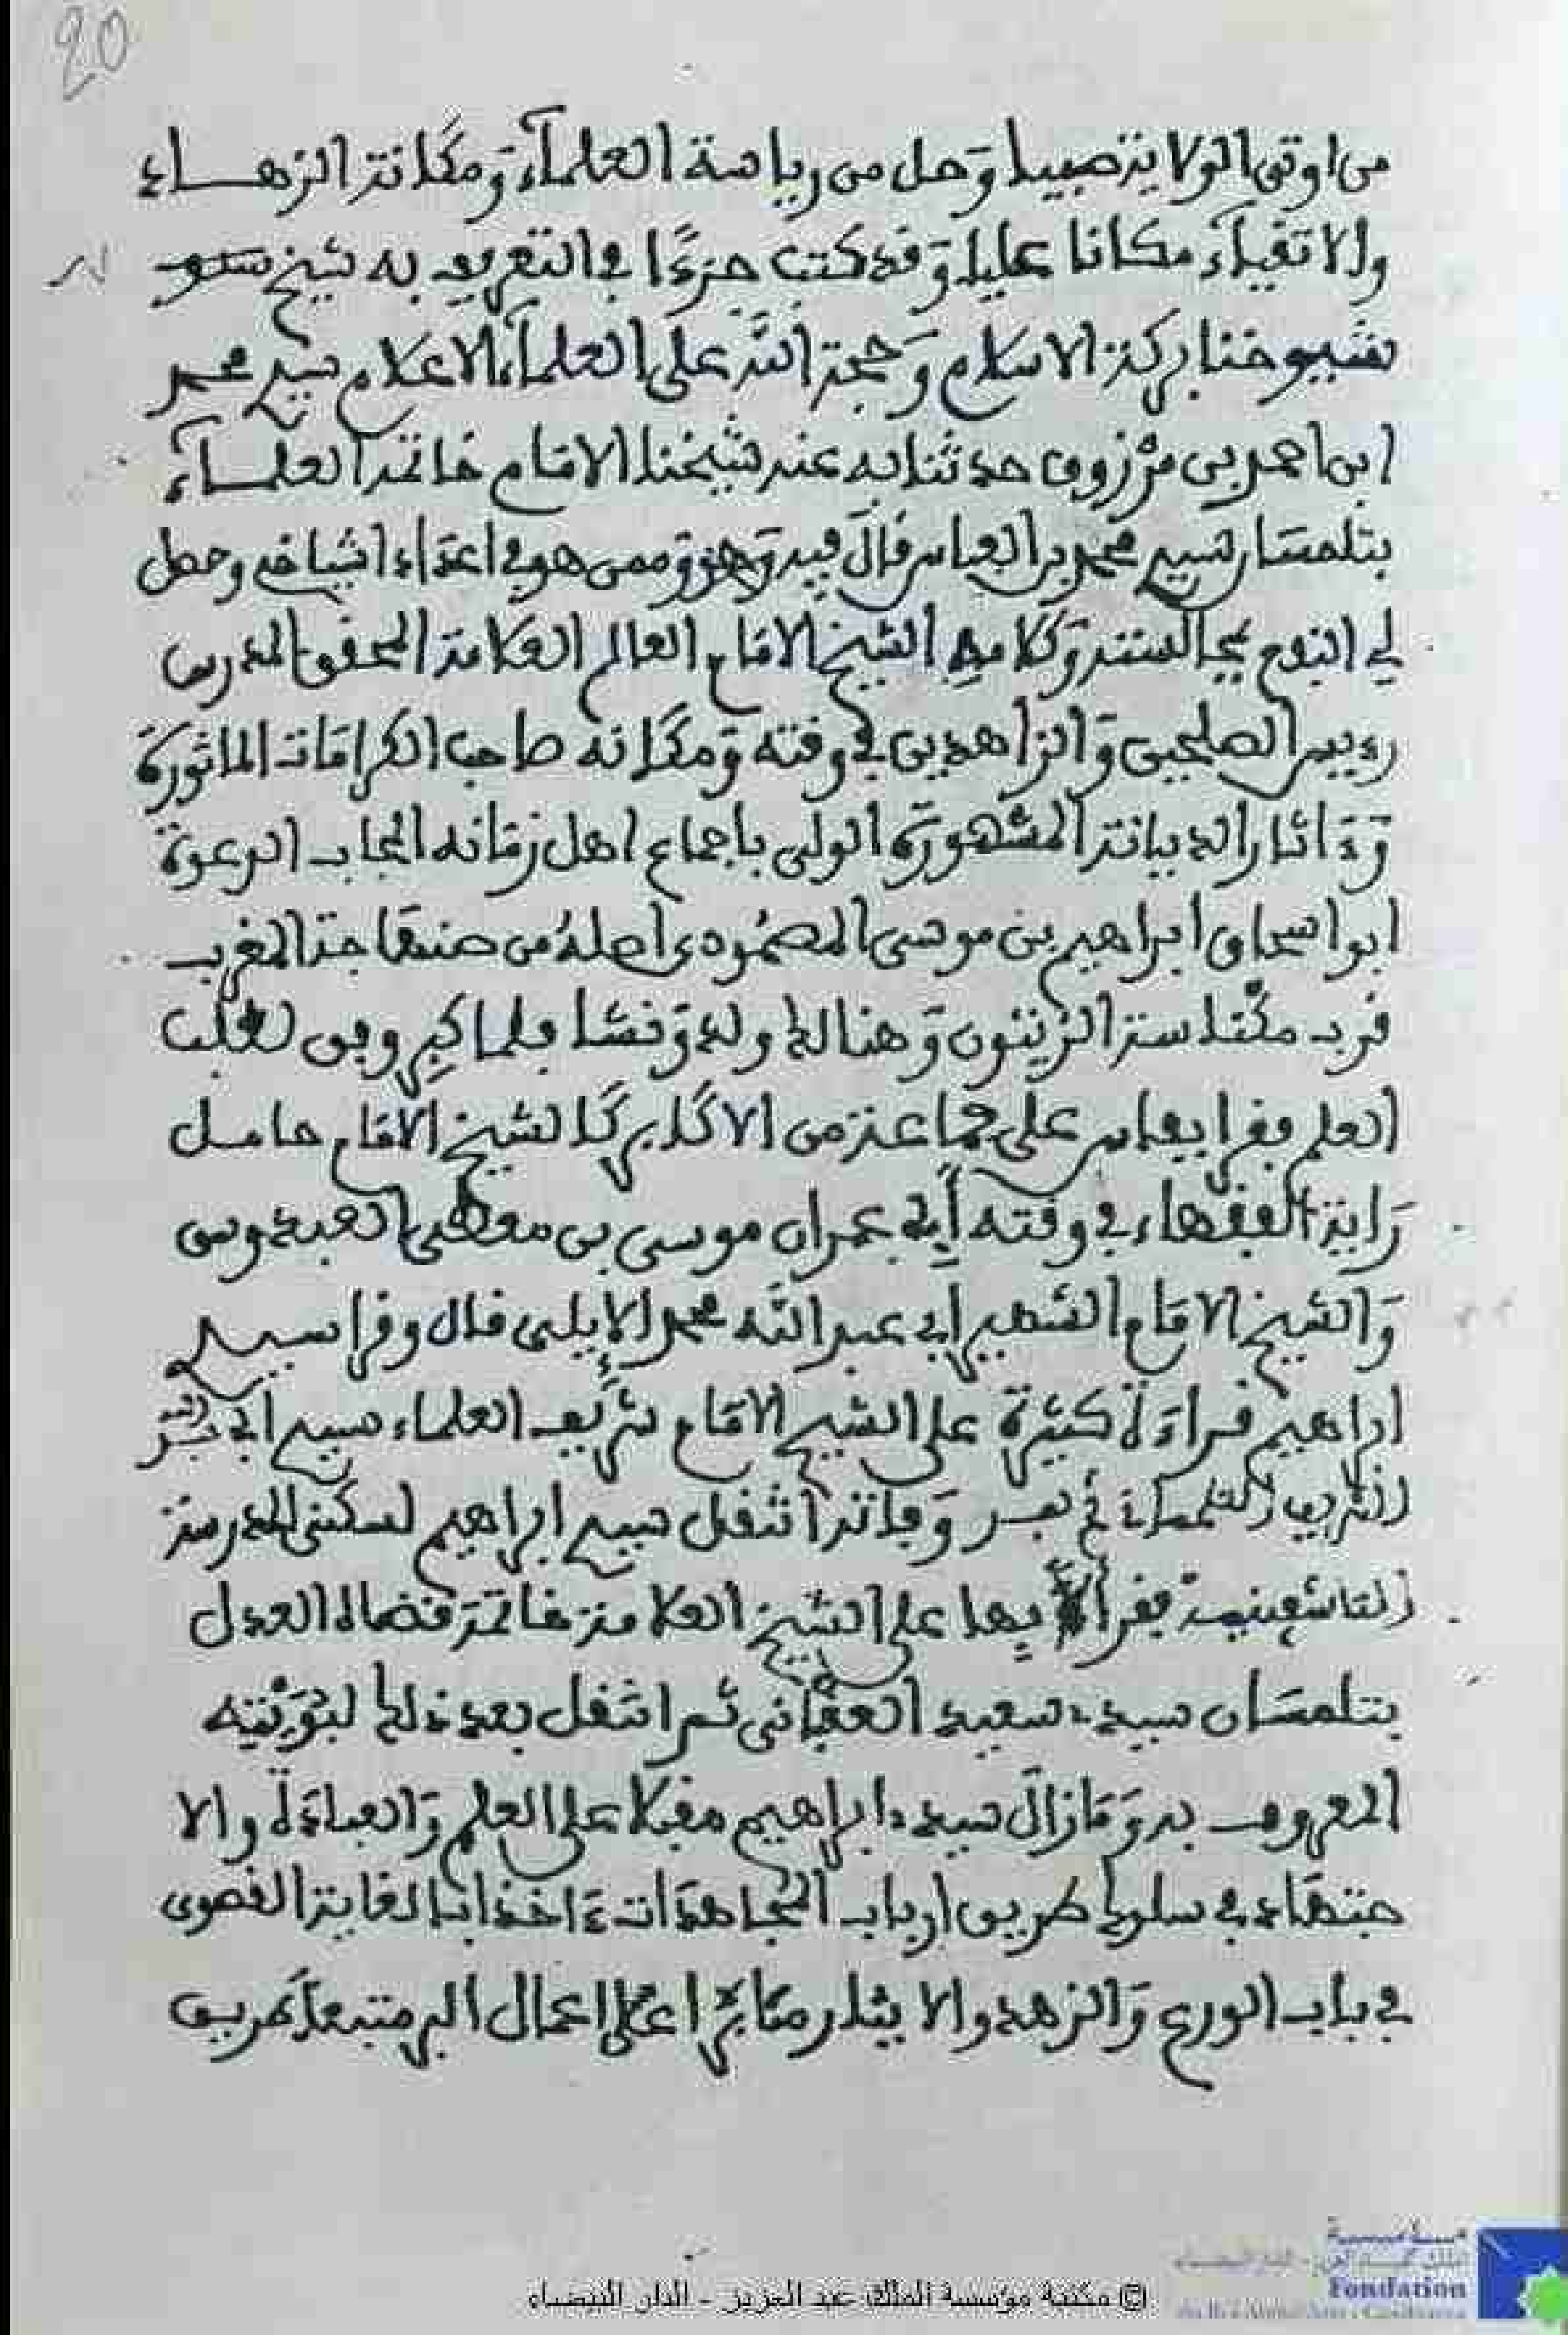 20
من اوتي الولاية صبيا وحل من رياسة العلماء ومكانة الزهاء
والاتقياء مكانا عليا وقد كتب جزءا في التعريف به شيخ
شيوخنا بركة الاسلام وحجة الله على العلماء الاعلام سيد محمد
ابن احمد بن مرزوق حدثنا به عنه شيخنا الامام خاتمة العلماء
بتلمسان سيد محمد بن العباس قال فيه وممن هو في اعداد اشياخي وحصل
لي النفع بمجالسته وكلامه الشيخ الامام العالم العلامة المحقق المدرس
رءيس الصلحين والزاهدين في وقته ومكانه صاحب الكرامات الماثورة
وءاثار الديانة المشهورة الولي باجماع اهل زمانه المجاب الدعوة
ابو اسحاق ابراهيم بن موسى المصمودي اصله من صنهاجة المغرب
قرب مكناسة الزيتون وهنالك ولد ونشا فلما كبر وفى لطلب
العلم فقرا بفاس على جماعة من الاكابر كالشيخ الامام حامل
راية الفقهاء في وقته أبي عمران موسى بن معطى العبدوسي
والشيخ الامام الشهير أبي عبد الله محمد الإبلي قال وقرا سيد
ابراهيم قراءة كثيرة على الشيخ الامام شريف العلماء سيد ابي عبد الله
الشريف التلمساني وفاته انتقل سيد ابراهيم لسكنى المدرسة
التاشفينية فقرأ بها على الشيخ العلامة خاتمة قضاة العدل
بتلمسان سيد سعيد العقباني ثم انتقل بعد ذلك لبويتته
المعروف به وما زال سيد ابراهيم مقبلا على العلم والعبادة والا
جتهاد في سلوك طريق ارباب المجاهدات ءاخذا بالغاية القصوى
في باب الورع والزهد والايثار مثابرا على اعمال البر متبعا طريق
© مكتبة مؤسسة الملك عبد العزيز - الدار البيضاء
مؤسسة
Fondation